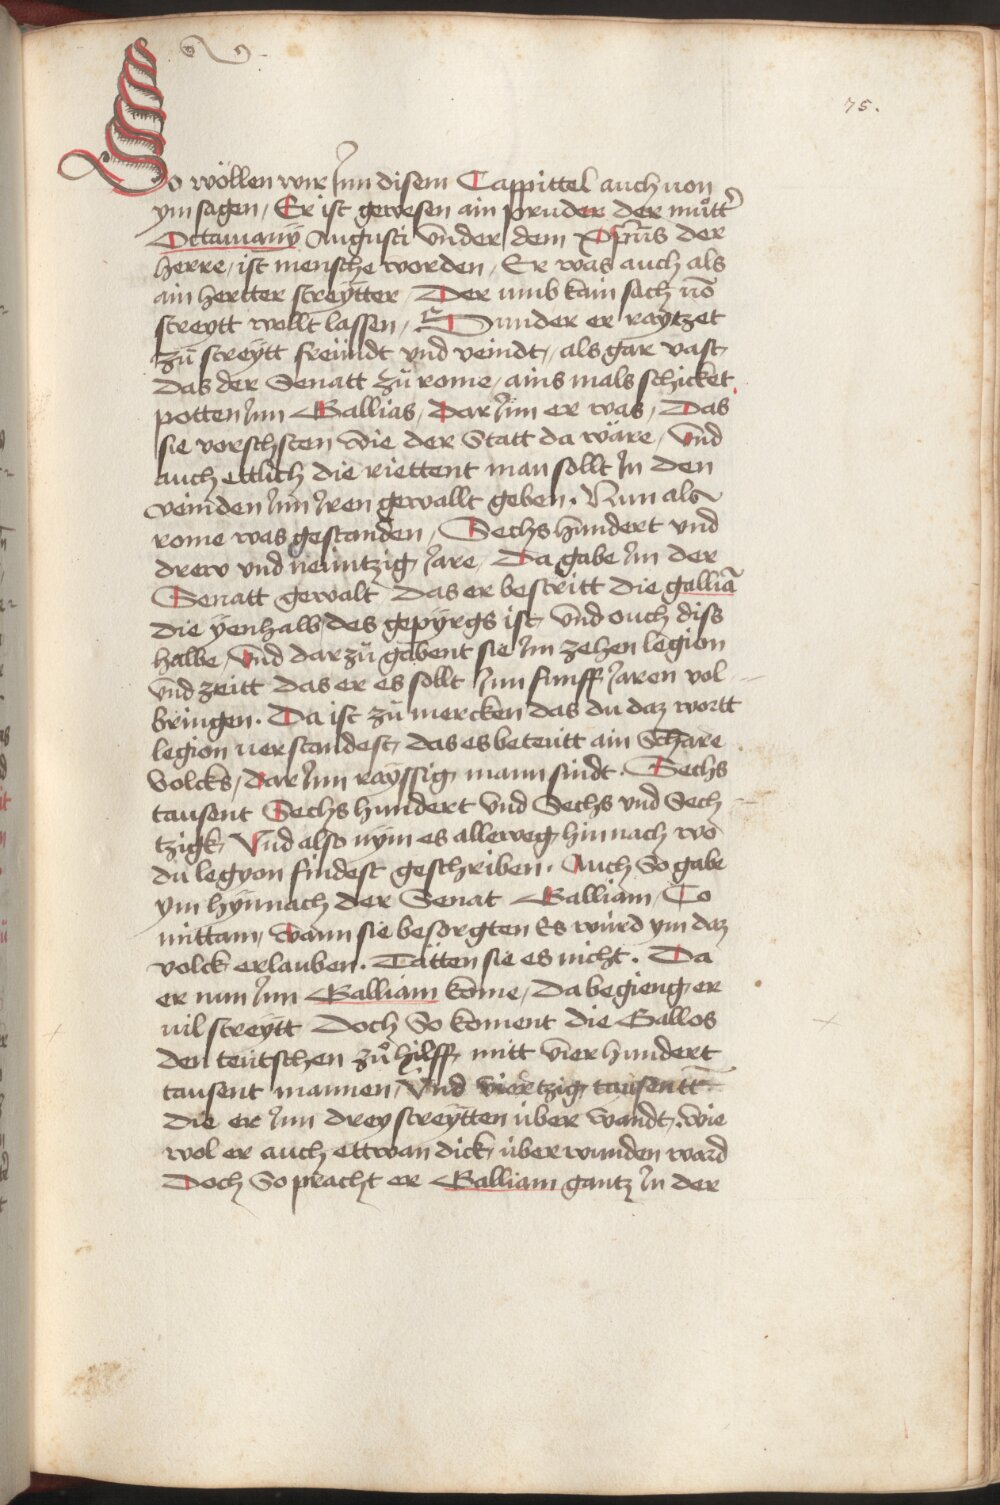 75.
So wöllen wir Jnn disem Cappittel auch von
ym sagen / Er ist gewesen ain pruder der můtt̛
Octauiany Augusti vnder dem xp̃us der
herre / ist mensche worden / Er was auch als
ain hertter streytter / Der umb kain sach uō
streytt wollt lassen / Sunder er raytzet
zů streytt freündt vnd veindt / als gar vast
das der Senatt zů rome / ains mals schicket
potten Jnn Gallias / dar Jnn er was / Das
sie vorschsten wie der Statt da wäre / Vnd
auch ettlich die riettent man sollt Jn den
veinden Jnn Jren gewallt geben . Nun als
rome was gestanden / Sechs hundert vnd
drew vnd neüntzig Jare / Da gabe Jm der
Senatt gewalt / Das er bestritt die galliā
die yenhalb des gepyrgs ist / vnd ouch diss
halbe / Vnd darzů gabent sie Jm zehen legion
vnd zeitt das er es sollt Jnn funff Jaren vol
bringen . Da ist zů mercken das du daz wortt
legion uerstandest / das es beteütt ain Schare
volcks / dar Jnn rayssig mann sindt . Sechs
tausent Sechs hundert vnd Sechs vnd Sech
tzigk / Vnd also nym es alleweg hinnach wo
du legyon findest geschriben . Auch So gabe
ym hynnach der Senat Galliam / Co
mittam / wann sie besorgten Es würd ym daz
volck erlauben . Tätten sie es nicht . Da
er nun Jnn Galliam kome / da begieng er
uil streytt Doch So koment die Gallos
den teütschen zů hilff / mitt vier hundert
tausent mannen / Vnd viertzig tausentt
die er Jnn drey streytten über wandt / wie
wol er auch ettwan dick überwunden ward
Doch So pracht er Galliam gantz Jn der